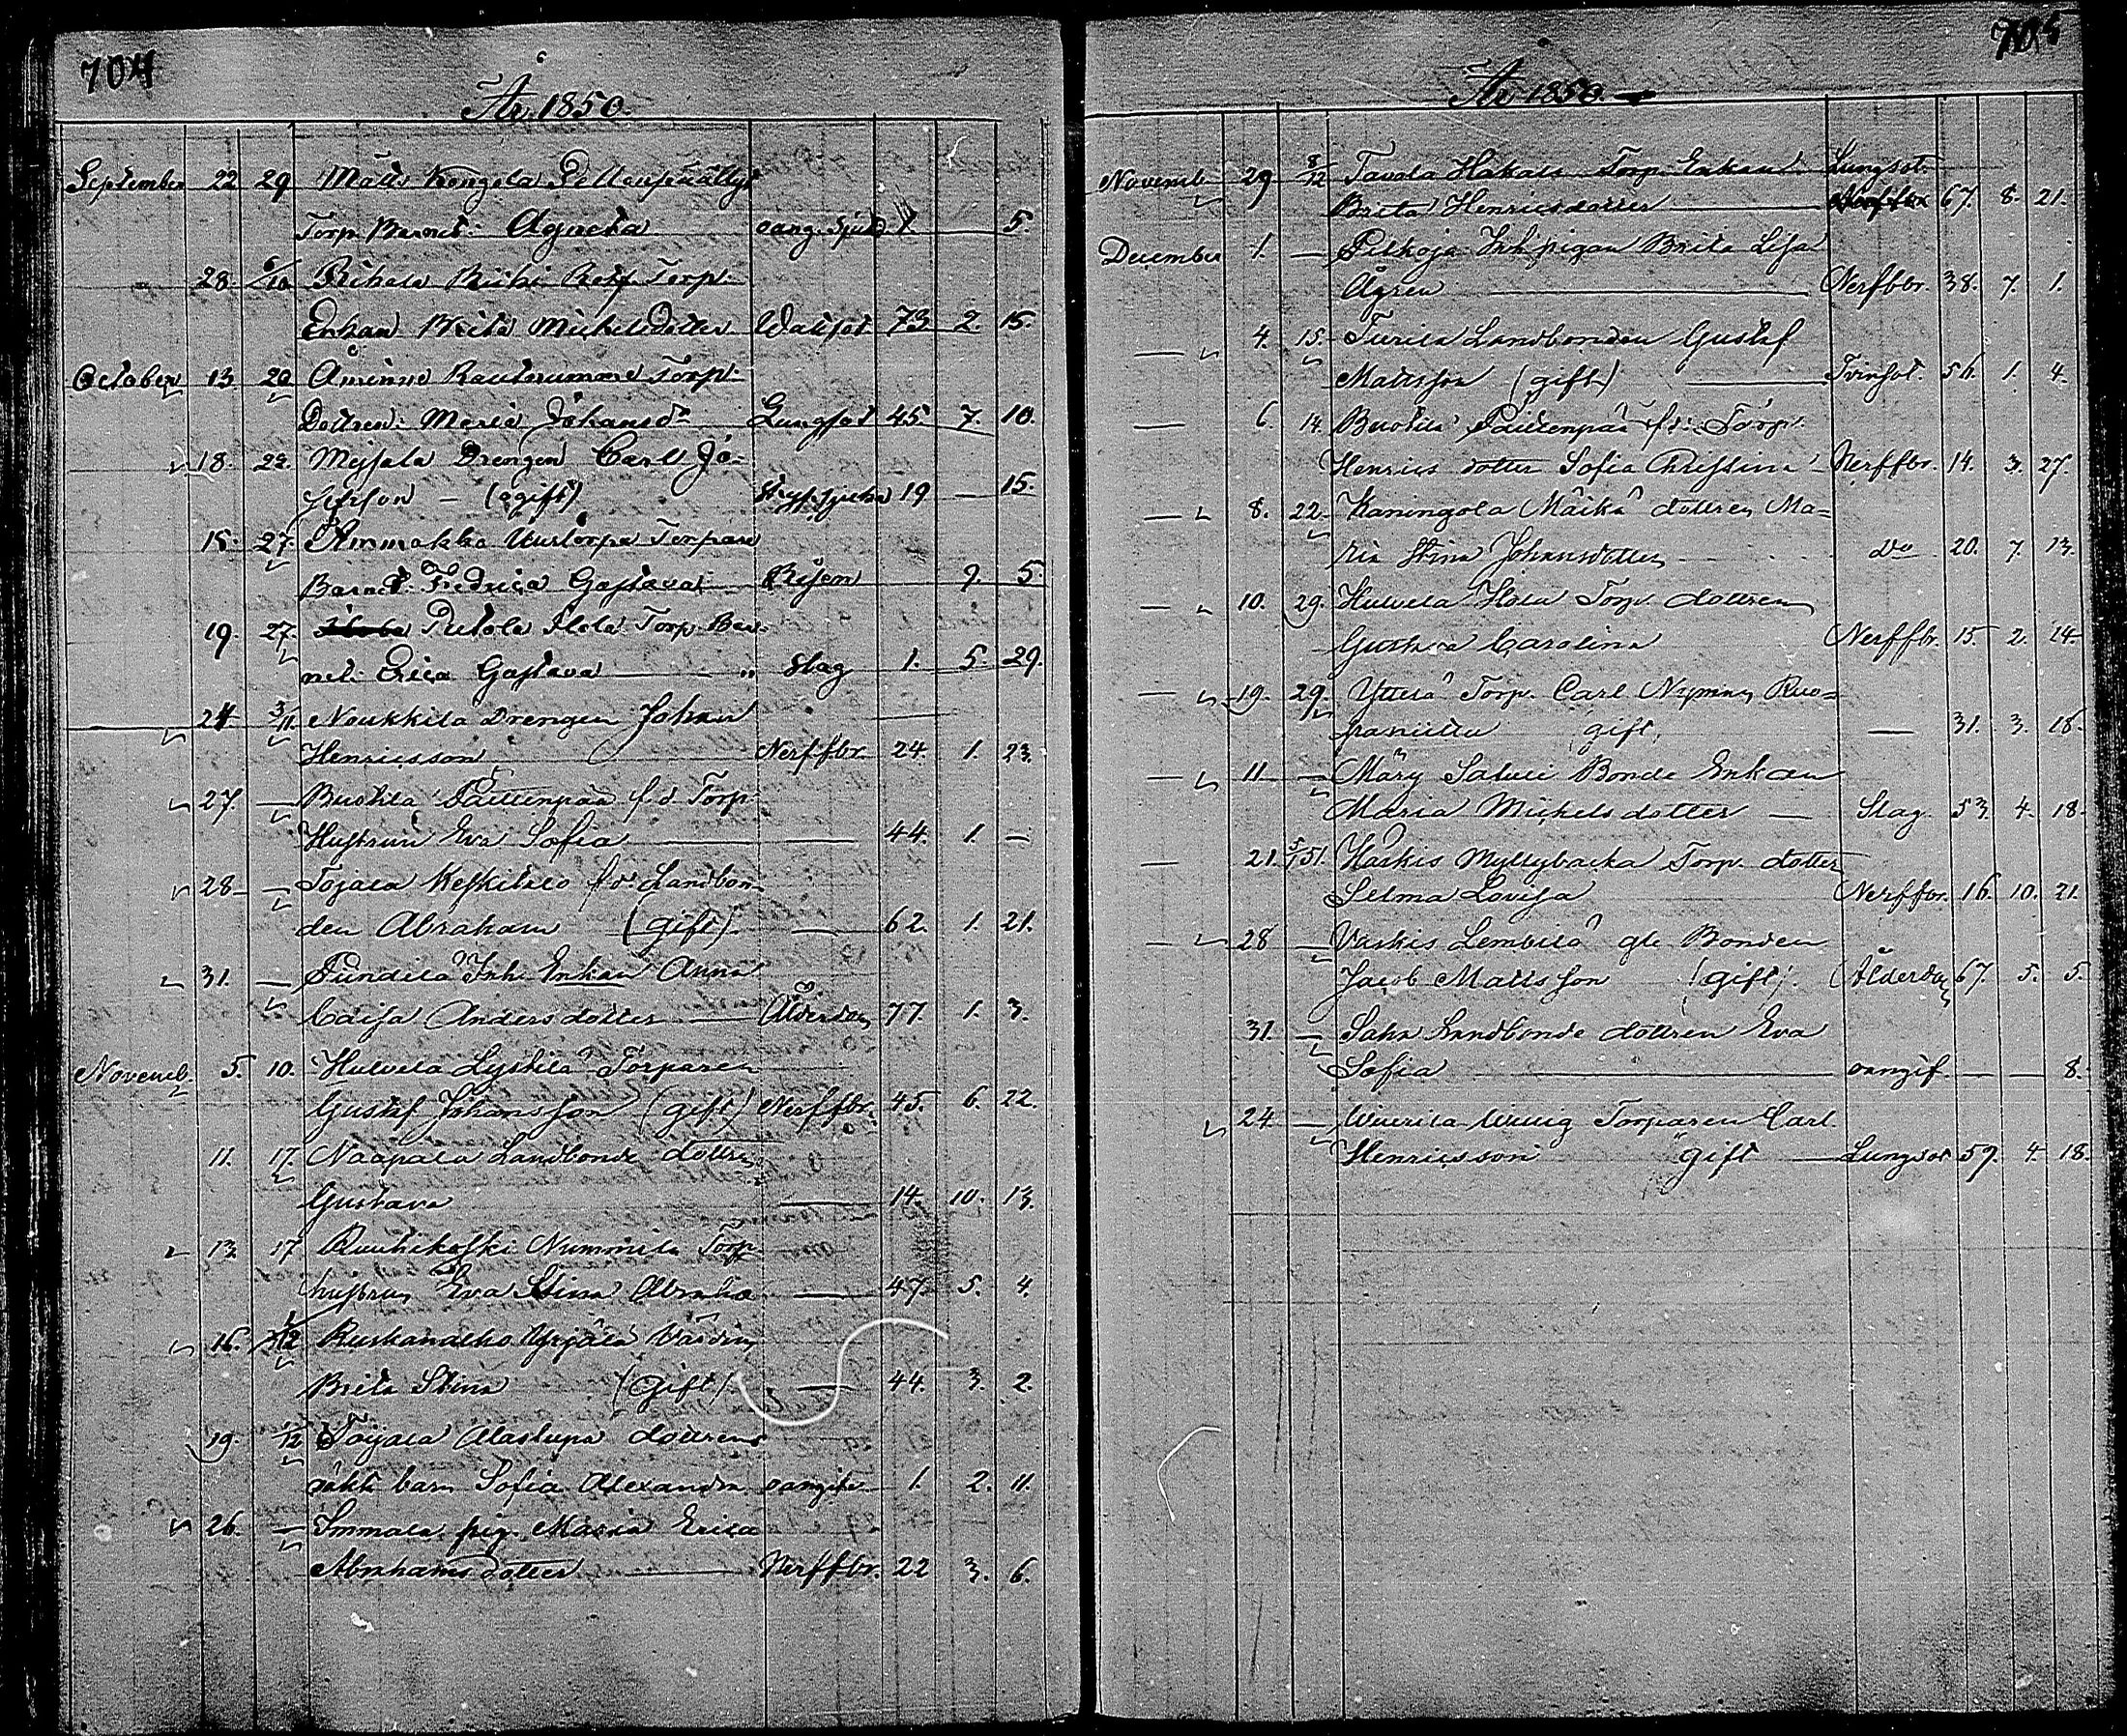 704
År 1850.
September 22 29 Matts Kongola Pellonpäällys
Torp. Barnet Agneta oang. Sjukd 1. 5.
28. 6/10 Torp.
Enkan Brita Michelsdotter Watusot 73 2. 15.
October 13 20 Äminne Rautanummi Torp.
Dottren Maria Johansdr Lungsot 45. 7. 10.
18. 27. Drengen Carl Jo-
sefsson — (ogift) 19 — 15.
15. 27. Ammakka Uustorpa Torpare
Barnet Fredrica Gustava Risen 9. 5.
19. 27. Torp. Bar-
net Erica Gustava Slag 1. 5. 29.
24. 3/11 Noukkila Drengen Johan
Henricsson Nerffbr. 24. 1. 23.
27. — Buokila Päittenpää f.d. Torp.
Hustrun Eva Sofia — 44. 1. —
28 — Tojala Keskitalo f.d. Landbon-
den Abraham (gift) — 62. 1. 21.
31. — Pundila Inh. Enkan Anna
Caisa Andersdotter — Ålderdom 77 1. 3.
Novemb. 5. 10. Hulvela Lystilä Torparen
Gustaf Johansson (gift) Nerffbr. 45. 6. 22.
11. 17. Naapala Landbonde dottren
Gustava — 14. 10. 13.
13. 17 Ruuhikoski Nummila Torp.
hustrun Eva Stina Abraha — 47. 5. 4.
16. 1/12 Ruskanalho Yrjälä Värdin
Brita Stina (Gift) — 44. 3. 2.
19. 1/12 Tojala Alastupa dottrens
oäkta barn Sofia Alexandra oangife. 1. 2. 11.
26. — Immala pig. Maria Erica
Abrahamsdotter Nerffbr. 22 3. 6.
705
År 1850.
Novemb 29 8/12 Tavola Hakala Torp. Enkan Lungsot.
Brita Henricsdotter 67. 8. 21.
December 1. — Pitkoja Inh pigan Brita Lisa
Ågren — Nerfbr. 38. 7. 1.
4. 15. Turila Landbonden Gustaf
Mattsson (gift) — Tvinsot. 56. 1. 4.
6. 14. Buokila Päittenpää f.d. Torp.
Henrics dotter Sofia Christina Nerffbr. 14. 3. 27.
8. 22. Kaningola Mäikä dottren Ma-
ria Stina Johansdotter do 20. 7. 13.
10. 29. Hulvela Torp. dottren
Gustava Carolina Nerffbr. 15 2. 14
19. 29. Torp. Carl Nyman Ruo-
gift. — 31. 3. 18.
11 — Märy Bonde Enkan
Maria Michelsdotter — Slag. 53. 4. 18.
21. 5/1 51. Härkis Myllybacka Torp. dotter
Selma Lovisa Nerffbr. 16. 10. 21.
28 — Lembilä gle Bonden
Jacob Mattsson (gift). Ålderdom 67. 5. 5.
31. — Saha Landbonde dottren Eva
Sofia — oangif. — — 8.
24. — Torparen Carl
Henricsson gift — Lungsot 59. 4. 18.